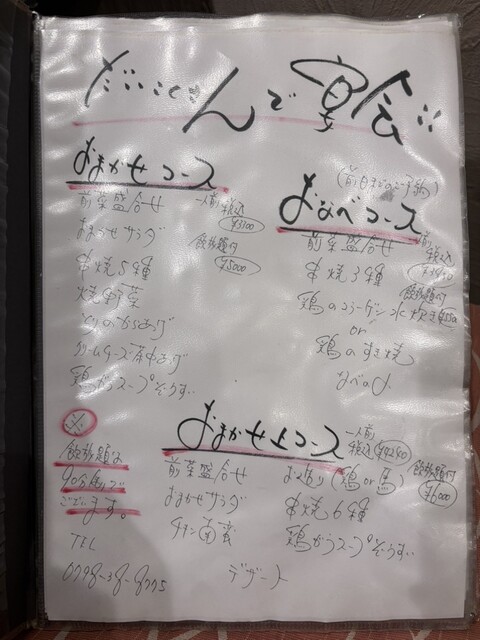 だいこくさんで宴会
おまかせコース
前菜盛合せ
一人前
税込
¥3300
おまかせサラダ
飲放題付
¥5000
串焼5種
焼野菜
とりのからあげ
クリームチーズ茶巾あげ
鶏がらスープぞうすい
(前日までのご予約)
おなべコース
前菜盛合せ
一人前
税込
串焼3種
飲放題付
鶏のコラーゲン水炊き
or
鶏のすき焼
なべの〆
おまかせ上コース
一人前
税込
¥4240
前菜盛合せ
おまかせサラダ
チキン南蛮
お造り(鶏or馬)
飲放題付
¥6000
串焼6種
鶏がらスープぞうすい
デザート
※
飲放題は
90分制で
ございます。
TEL
0798-38-8775